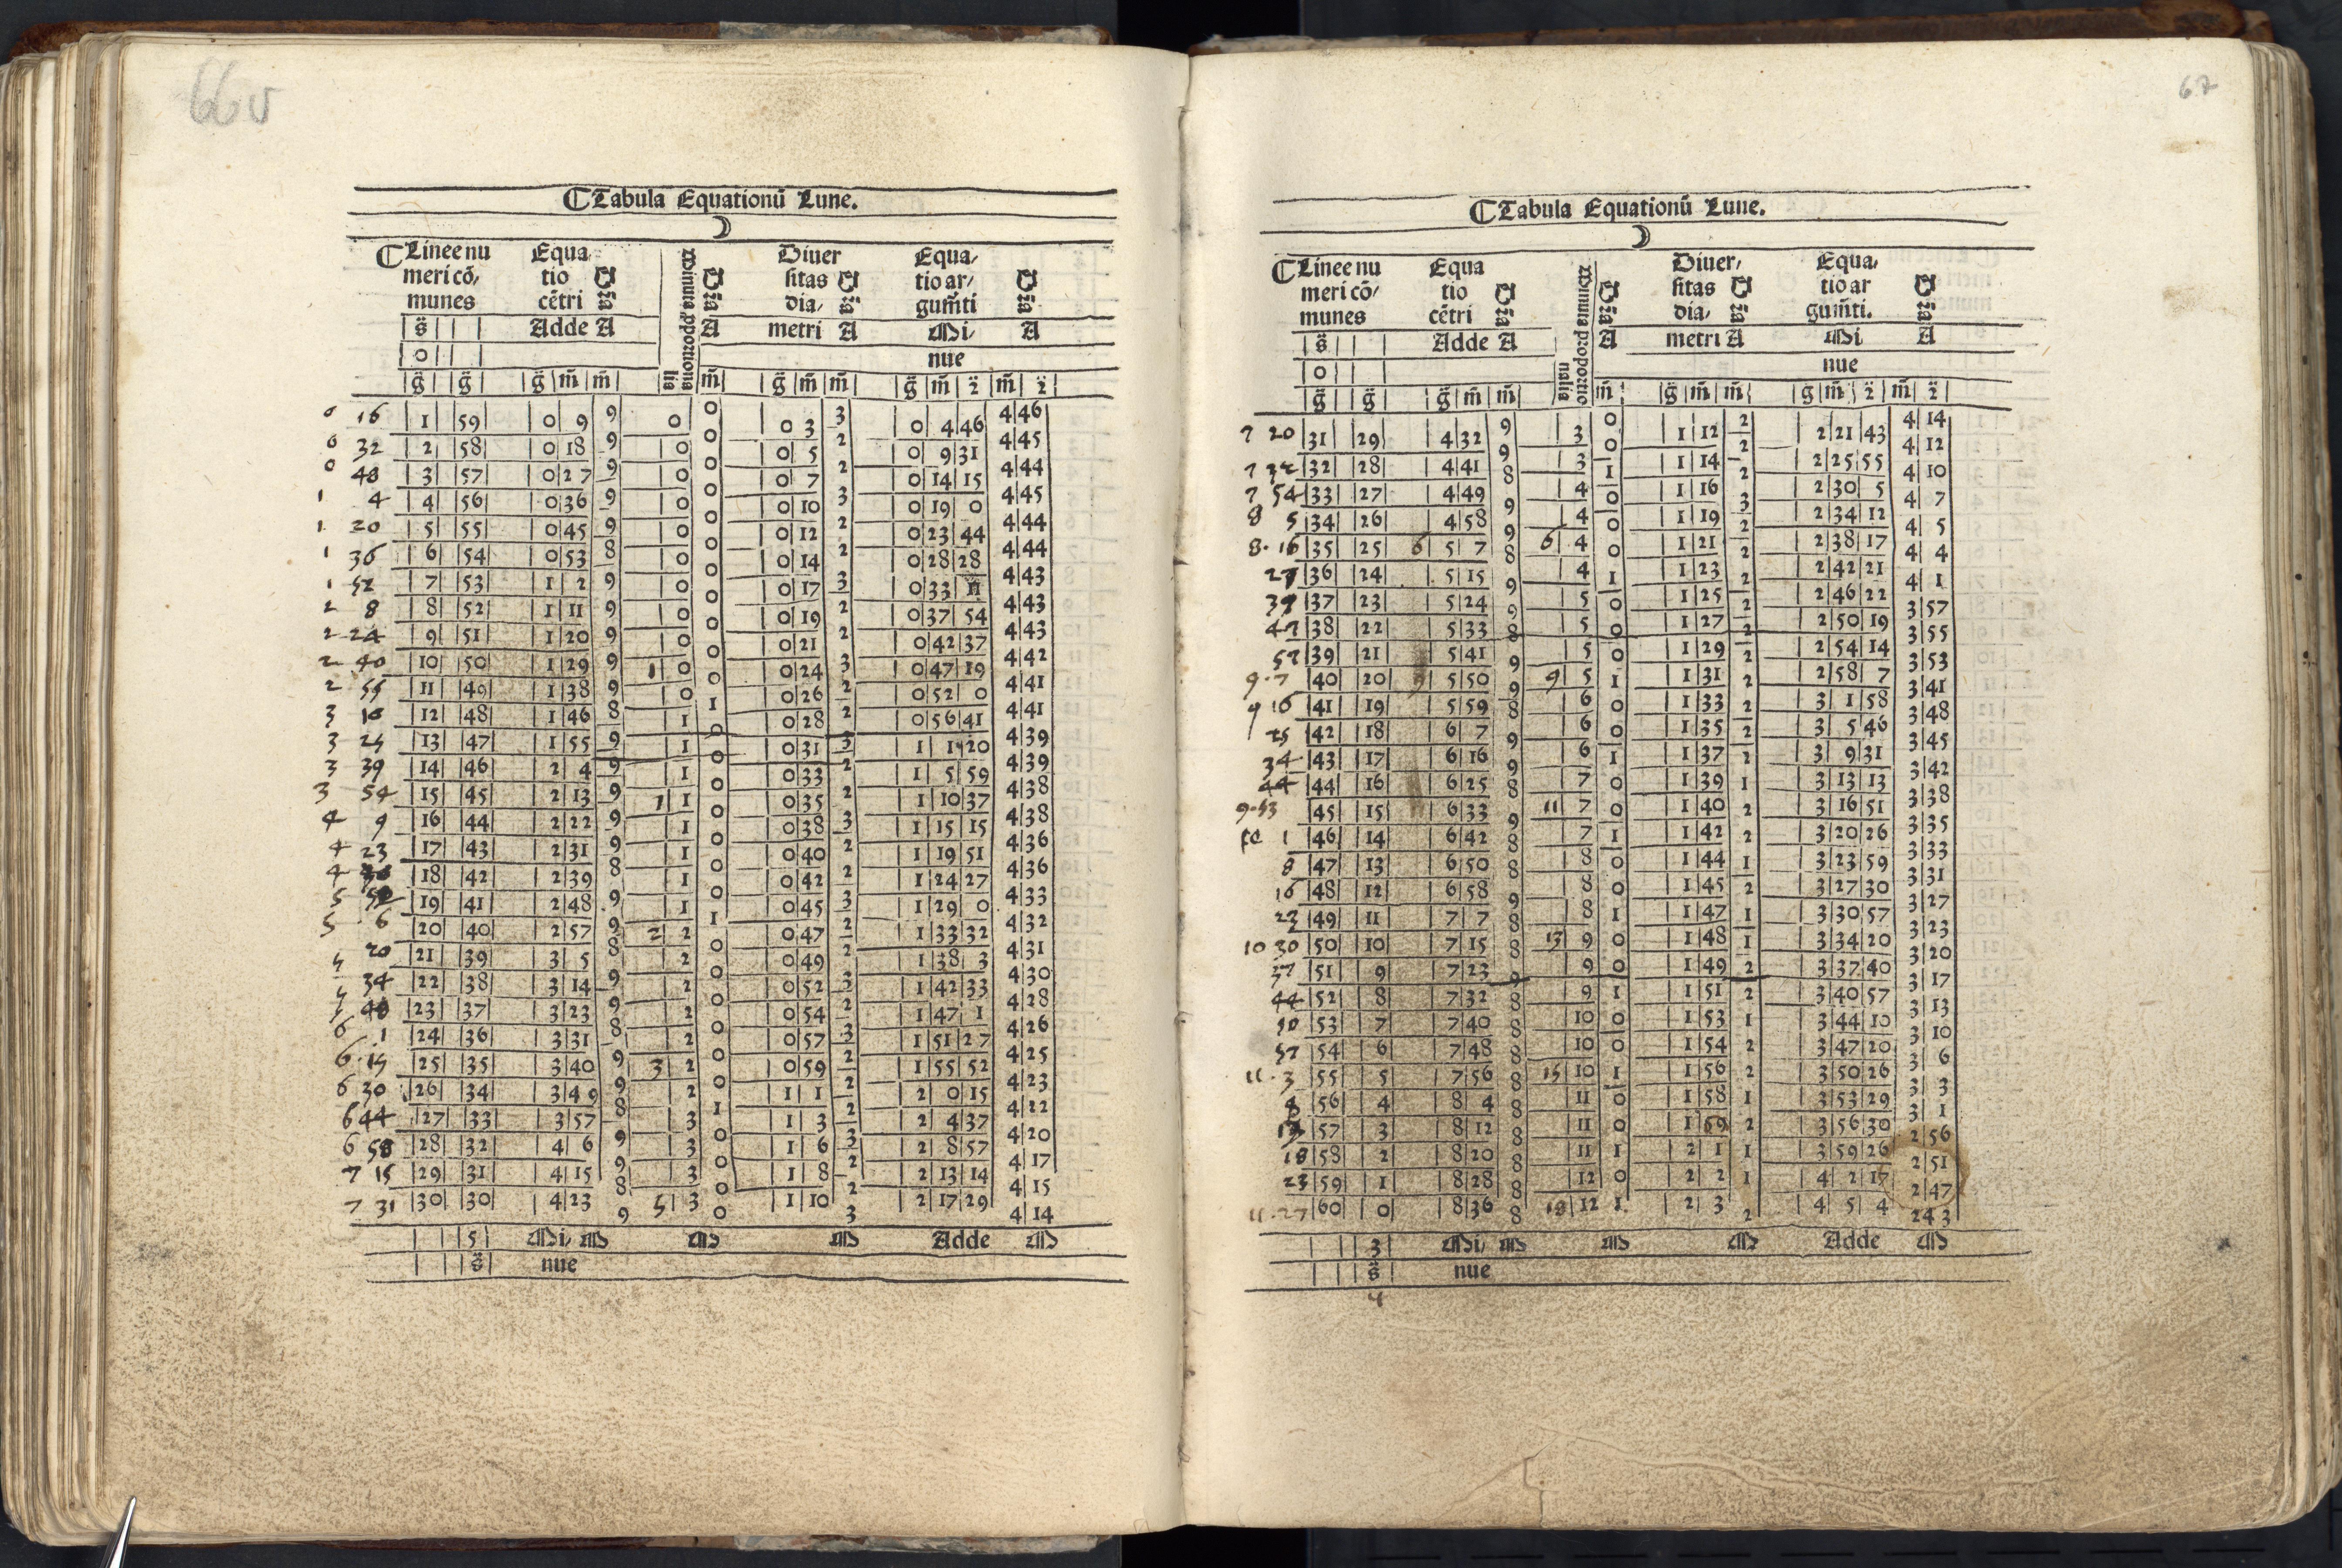 66v
Tabula Equationū Lune.
☽
Linee nu Equa Minuta proportiona Dr̃a Diuer Equa,
meri cō, tio Dr̃a lia sitas Dr̃a tio ar, Dr̃a
munes cētri dia, gum̄ti
s̃ Adde A A metri A Mi, A
0 nue
g̃ g̃ g̃ m̃ m̃ m̃ g̃ m̃ m̃ g̃ m̃ 2̃ m̃ 2̃
0 16 1 59 0 9 9 0 0 0 3 3 0 4 46 4 46
0 32 2 58 0 18 9 0 0 0 5 2 0 9 31 4 45
0 48 3 57 0 27 9 0 0 0 7 2 0 14 15 4 44
1 4 4 56 0 36 9 0 0 0 10 3 0 19 0 4 45
1 20 5 55 0 45 9 0 0 0 12 2 0 23 44 4 44
1 36 6 54 0 53 8 0 0 0 14 2 0 28 28 4 44
1 52 7 53 1 2 9 0 0 0 17 3 0 33 11 4 43
2 8 8 52 1 11 9 0 0 0 19 2 0 37 54 4 43
2 24 9 51 1 20 9 0 0 0 21 2 0 42 37 4 43
2 40 10 50 1 29 9 1 0 0 0 24 3 0 47 19 4 42
2 55 11 49 1 38 9 0 1 0 26 2 0 52 0 4 41
3 10 12 48 1 46 8 1 0 0 28 2 0 56 41 4 41
3 25 13 47 1 55 9 1 0 0 31 3 1 1 20 4 39
3 39 14 46 2 4 9 1 0 0 33 2 1 5 59 4 39
3 54 15 45 2 13 9 1 1 0 0 35 2 1 10 37 4 38
4 9 16 44 2 22 9 1 0 0 38 3 1 15 15 4 38
4 23 17 43 2 31 9 1 0 0 40 2 1 19 51 4 36
4 18 42 2 39 8 1 0 0 42 2 1 24 27 4 36
5 19 41 2 48 9 1 1 0 45 3 1 29 0 4 33
5 6 20 40 2 57 9 2 2 0 0 47 2 1 33 32 4 32
5 20 21 39 3 5 8 2 0 0 49 2 1 38 3 4 31
5 34 22 38 3 14 9 2 0 0 52 3 1 42 33 4 30
5 48 23 37 3 23 9 2 0 0 54 2 1 47 1 4 28
6 1 24 36 3 31 8 2 0 0 57 3 1 51 27 4 26
6 15 25 35 3 40 9 3 2 0 0 59 2 1 55 52 4 25
6 30 26 34 3 49 9 2 1 1 1 2 2 0 15 4 23
6 44 27 33 3 57 8 3 0 1 3 2 2 4 37 4 22
6 58 28 32 4 6 9 3 0 1 6 3 2 8 57 4 20
7 15 29 31 4 15 9 3 0 1 8 2 2 13 14 4 17
7 31 30 30 4 23 8 5 3 0 1 10 2 2 17 29 4 15
9 0 3 4 14
5 Mi, M M M Adde M
s̃ nue
67
Tabula Equationū Lune.
☽
Linee nu Equa Minuta proportio Dr̃a Diuer, Equa,
meri cō, tio Dr̃a nalia sitas Dr̃a tio ar Dr̃a
munes cētri dia, gum̄ti.
s̃ Adde A A metri A Mi A
0 nue
g̃ g̃ g̃ m̃ m̃ m̃ g̃ m̃ m̃ g̃ m̃ 2̃ m̃ 2̃
7 20 31 29 4 32 9 3 0 1 12 2 2 21 43 4 14
7 32 32 28 4 41 9 3 0 1 14 2 2 25 55 4 12
7 54 33 27 4 49 8 4 1 1 16 2 2 30 5 4 10
8 5 34 26 4 58 9 4 0 1 19 3 2 34 12 4 7
8 16 35 25 6 5 7 9 6 4 0 1 21 2 2 38 17 4 5
27 36 24 5 15 8 4 0 1 23 2 2 42 21 4 4
37 37 23 5 24 9 5 1 1 25 2 2 46 22 4 1
47 38 22 5 33 9 5 0 1 27 2 2 50 19 3 57
57 39 21 5 41 8 5 0 1 29 2 2 54 14 3 55
9 7 40 20 9 5 50 9 9 5 0 1 31 2 2 58 7 3 53
9 16 41 19 5 59 9 6 1 1 33 2 3 1 58 3 41
25 42 18 6 7 8 6 0 1 35 2 3 5 46 3 48
34 43 17 6 16 9 6 0 1 37 2 3 9 31 3 45
44 44 16 6 25 9 7 1 1 39 2 3 13 13 3 42
9 53 45 15 6 33 8 11 7 0 1 40 1 3 16 51 3 38
10 1 46 14 6 42 9 7 0 1 42 2 3 20 26 3 35
8 47 13 6 50 8 8 1 1 44 2 3 23 59 3 33
16 48 12 6 58 8 8 0 1 45 1 3 27 30 3 31
23 49 11 7 7 9 8 0 1 47 2 3 30 57 3 27
10 30 50 10 7 15 8 13 9 1 1 48 1 3 34 20 3 23
37 51 9 7 23 8 9 0 1 49 1 3 37 40 3 20
44 52 8 7 32 9 9 0 1 51 2 3 40 57 3 17
50 53 7 7 40 8 10 1 1 53 2 3 44 10 3 13
57 54 6 7 48 8 10 0 1 54 1 3 47 20 3 10
11 3 55 5 7 56 8 15 10 0 1 56 2 3 50 26 3 6
8 56 4 8 4 8 11 1 1 58 2 3 53 29 3 3
13 57 3 8 12 8 11 0 1 59 1 3 56 30 3 1
18 58 2 8 20 8 11 0 2 1 2 3 59 26 2 56
23 59 1 8 28 8 12 1 2 2 1 4 2 17 2 51
11 27 60 0 8 36 8 18 12 0 2 3 1 4 5 4 2 47
8 1 2 2 43
3 Mi, M M M Adde M
s̃ nue
4